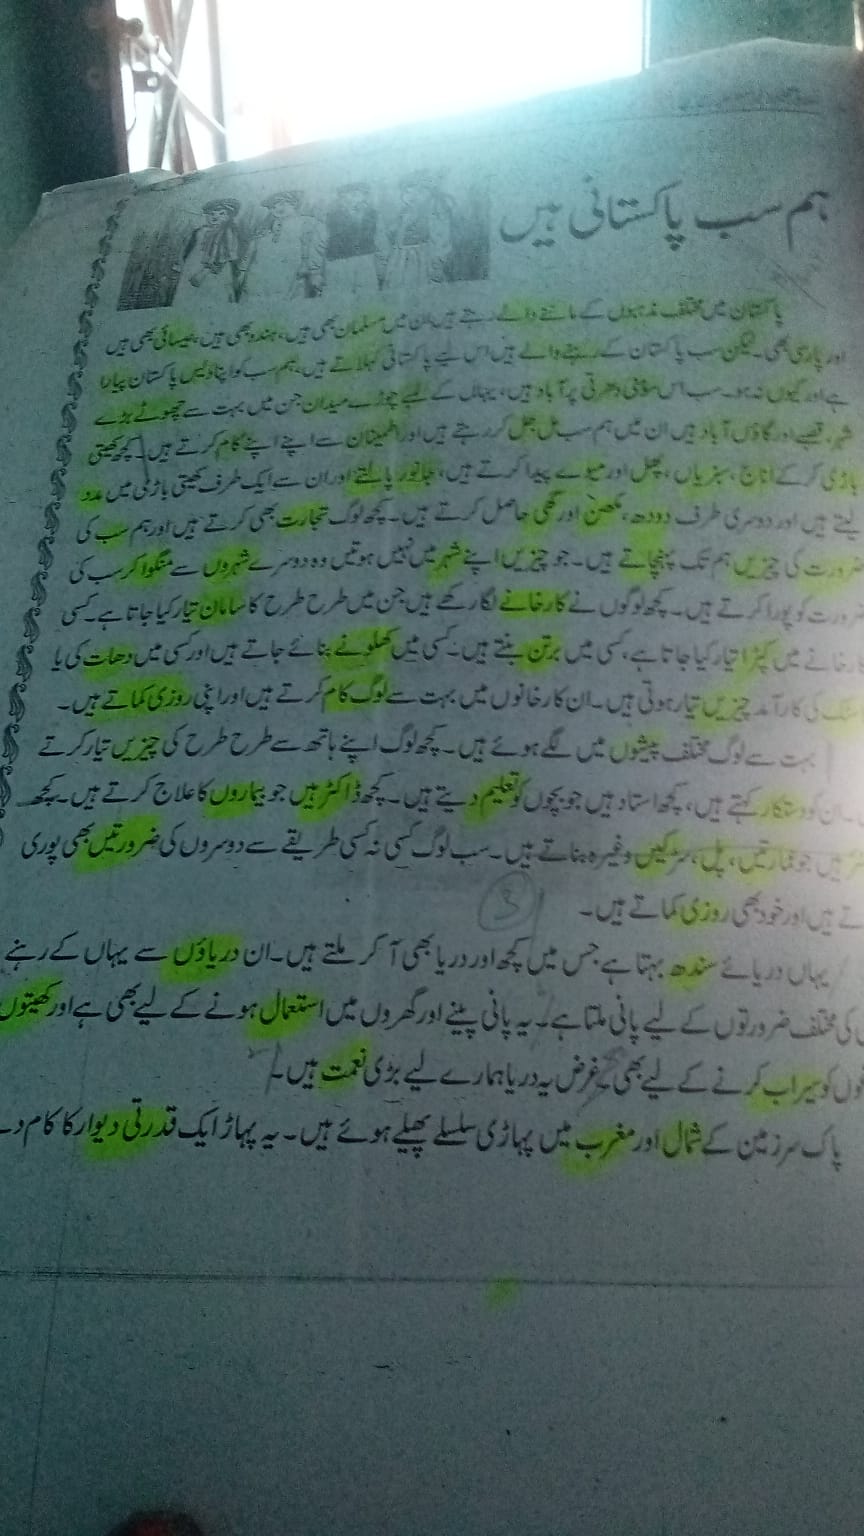 ہم سب پاکستانی ہیں
پاکستان میں مختلف مذہبوں کے ماننے والے رہتے ہیں ان میں مسلمان بھی ہیں، ہندو بھی ہیں، عیسائی بھی ہیں
اور پارسی بھی۔ لیکن سب پاکستان کے رہنے والے ہیں اس لیے پاکستانی کہلاتے ہیں۔ ہم سب کو اپنا دیس پاکستان پیارا
ہے اور کیوں نہ ہو۔ سب اس دھرتی پر آباد ہیں، یہاں کے لمبے چوڑے میدان جن میں بہت سے چھوٹے بڑے
شہر، قصبے اور گاؤں آباد ہیں ان میں ہم سب مل جل کر رہتے ہیں اور اطمینان سے اپنے اپنے کام کرتے ہیں۔ کچھ کھیتی
باڑی کر کے اناج، سبزیاں، پھل اور میوے پیدا کرتے ہیں، جانور پالتے اور ان سے ایک طرف کھیتی باڑی میں مدد
لیتے ہیں اور دوسری طرف دودھ، مکھن اور گھی حاصل کرتے ہیں۔ کچھ لوگ تجارت بھی کرتے ہیں اور ہم سب کی
ضرورت کی چیزیں ہم تک پہنچاتے ہیں۔ جو چیزیں اپنے شہر میں نہیں ہوتیں وہ دوسرے شہروں سے منگوا کر سب کی
ضرورت کو پورا کرتے ہیں۔ کچھ لوگوں نے کارخانے لگا رکھے ہیں جن میں طرح طرح کا سامان تیار کیا جاتا ہے۔ کسی
کارخانے میں کپڑا تیار کیا جاتا ہے، کسی میں برتن بنتے ہیں۔ کسی میں کھلونے بنائے جاتے ہیں اور کسی میں دھات کی یا
کی کارآمد چیزیں تیار ہوتی ہیں۔ ان کارخانوں میں بہت سے لوگ کام کرتے ہیں اور اپنی روزی کماتے ہیں۔
بہت سے لوگ مختلف پیشوں میں لگے ہوئے ہیں۔ کچھ لوگ اپنے ہاتھ سے طرح طرح کی چیزیں تیار کرتے
ان کو دستکار کہتے ہیں، کچھ استاد ہیں جو بچوں کو تعلیم دیتے ہیں۔ کچھ ڈاکٹر ہیں جو بیماروں کا علاج کرتے ہیں۔ کچھ
ہیں جو عمارتیں، پل، سڑکیں وغیرہ بناتے ہیں۔ سب لوگ کسی نہ کسی طریقے سے دوسروں کی ضرورتیں بھی پوری
ہیں اور خود بھی روزی کماتے ہیں۔
3
یہاں دریائے سندھ بہتا ہے جس میں کچھ اور دریا بھی آ کر ملتے ہیں۔ ان دریاؤں سے یہاں کے رہنے
کی مختلف ضرورتوں کے لیے پانی ملتا ہے۔ یہ پانی پینے اور گھروں میں استعمال ہونے کے لیے بھی ہے اور کھیتوں
کو سیراب کرنے کے لیے بھی۔ غرض یہ دریا ہمارے لیے بڑی نعمت ہیں۔
پاک سرزمین کے شمال اور مغرب میں پہاڑی سلسلے پھیلے ہوئے ہیں۔ یہ پہاڑ ایک قدرتی دیوار کا کام